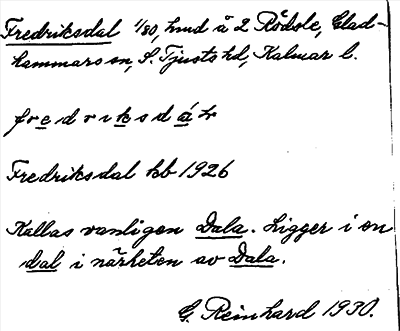 Fredriksdal 1/80, hmd å 2 Rödsle, Glad-
hammars sn, S. Tjusts hd, Kalmar l.
fredriksdál
Fredriksdal kb 1926
Kallas vanligen Dala. Ligger i en
dal i närheten av Dala.
G. Reinhard 1930.